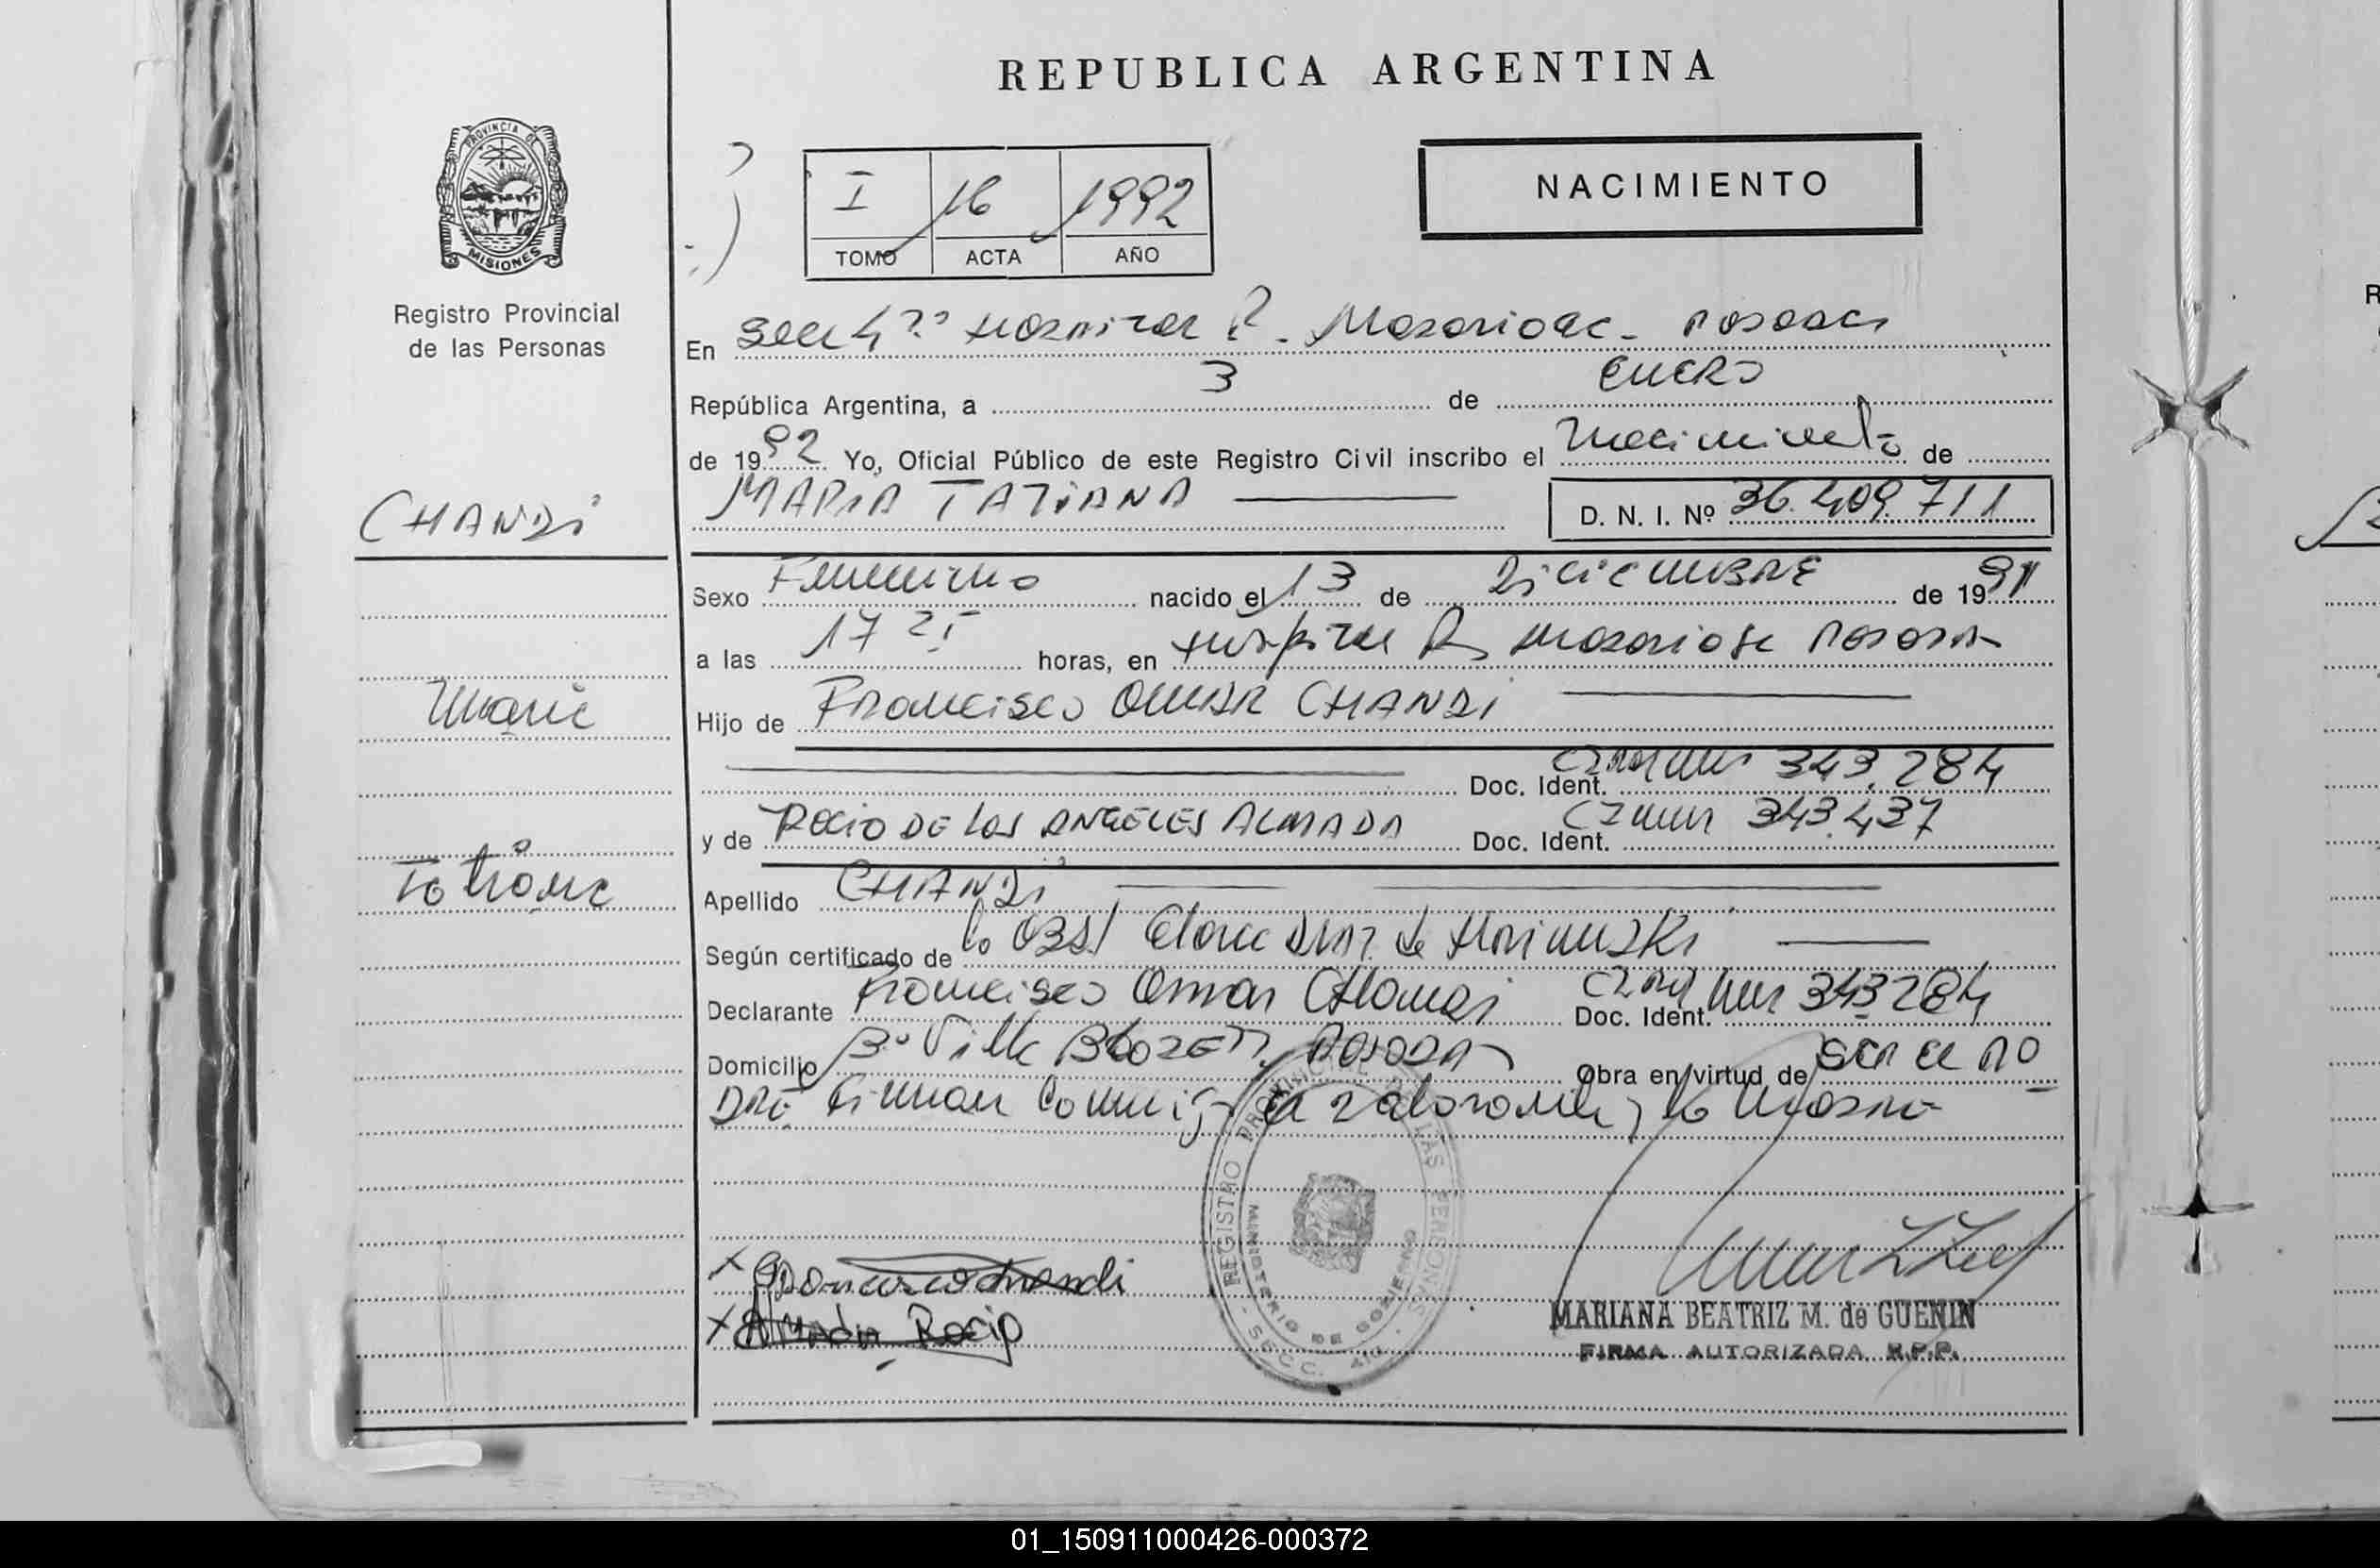 REPUBLICA ARGENTINA
PROVINCIA DE
MISIONES
Registro Provincial
de las Personas
I 16 1992
TOMO ACTA AÑO
NACIMIENTO
En Secc 4ta Hospital R. Madariaga - Posadas
República Argentina, a 3 de ENERO
de 1992 Yo, Oficial Público de este Registro Civil inscribo el Nacimiento de
MARIA TATIANA D. N. I. Nº 36.409.711
CHANDI
Sexo Femenino nacido el 13 de DiCiEMBRE de 1991
a las 17 horas, en Hospital R. Madariaga Posadas
Maria
Hijo de Francisco OMAR CHANDI
Doc. Ident. 343.284
y de ROCIO DE LOS ANGELES ALMADA Doc. Ident. 343.437
Tatiana
Apellido CHANDI
Según certificado de la OBST
Declarante Francisco Omar Chandi Doc. Ident. 343284
Domicilio Bº Villa Posadas Obra en virtud de SER EL PA
DRE Firman conmigo el declarante y la
REGISTRO PROVINCIAL DE LAS PERSONAS
MINISTERIO DE GOBIERNO
SECC. 4ta
x Chandi
x Almada Rocio
MARIANA BEATRIZ M. de GUENIN
FIRMA AUTORIZADA R.P.P.
01_150911000426-000372